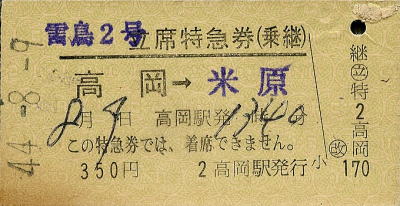 雷鳥2号
立席特急券(乗継)
高岡→米原
8月9日 高岡駅発 13時40分
この特急券では、着席できません。
350円 2高岡駅発行
44-8-9
継立特2高岡
小改170